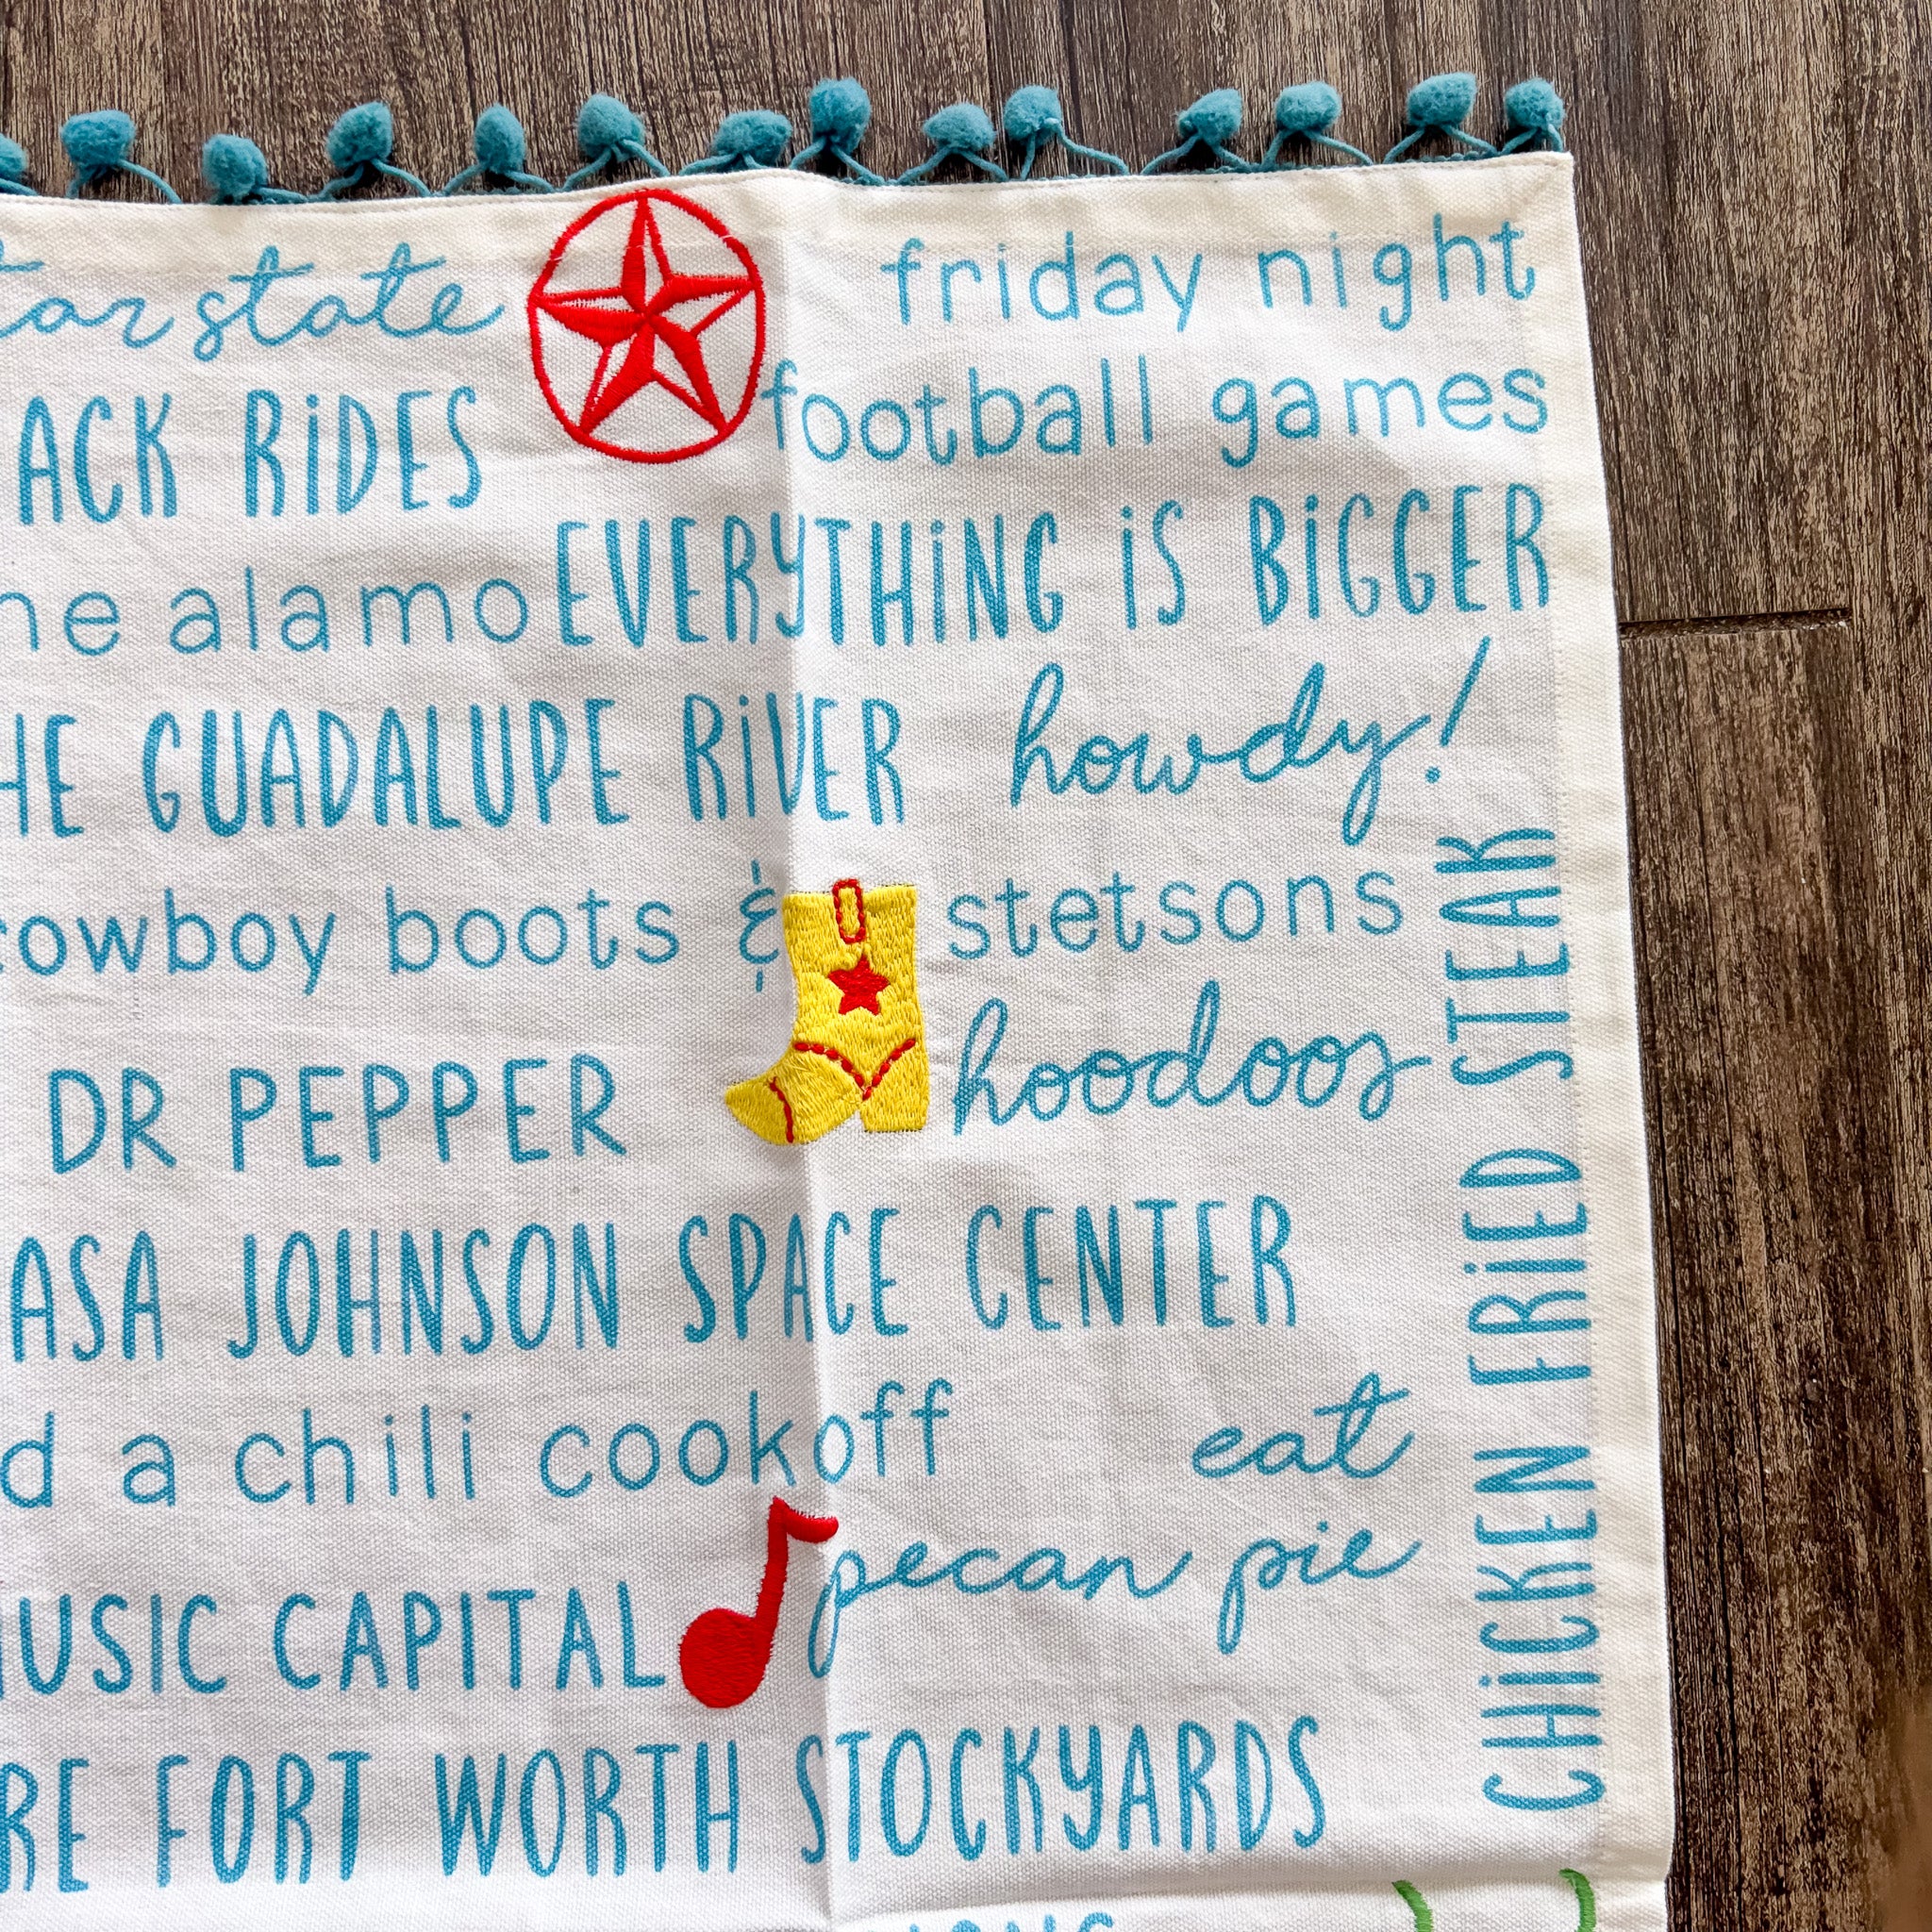 star state
friday night
football games
ACK RiDES
the alamo
EVERYTHiNG iS BiGGER
THE GUADALUPE RiVER
howdy!
cowboy boots & stetsons
DR PEPPER
hoodoos
NASA JOHNSON SPACE CENTER
d a chili cookoff
eat
pecan pie
MUSIC CAPITAL
RE FORT WORTH STOCKYARDS
CHiCKEN FRiED STEAK